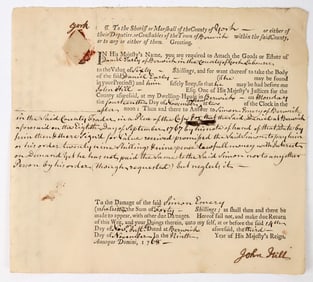 York
To the Sheriff or Marshall of the County of York or either of
their Deputies, or Constables of the Town of Berwick within the said County,
or to any or either of them. Greeting.
IN His Majesty's Name, you are required to Attach the Goods or Estate of
Daniel Furbish of Berwick in the County of York
to the Value of Sixty Shillings, and for want thereof to take the Body
of the said Daniel (if he may be found
in your Precinct) and him safely keep, so that he may be had before me
John Hill Esq; One of his Majesty's Justices for the
County aforesaid, at my Dwelling House in Berwick on Monday
fourteenth Day of November at of the Clock in the
after noon: Then and there to Answer to Simon Emery of Berwick
in the said County Trader, in a Plea of the Case For that the said Daniel at Berwick
aforesaid on the Eighth Day of September 1767 by his note of hand of that date by
him then there Signd for Value received promised the said Simon to pay him
or his order twenty nine Shillings & nine pence lawfull money with Interest
on Demand yet he has not paid the same to the said Simon nor to any other
Person by his order (though requested) but neglects it
To the Damage of the said Simon Emery
(as he saith) the Sum of Forty Shillings; as shall then and there be
made to appear, with other due Damages. Hereof fail not, and make due Return
of this Writ, and your Doings therein, unto my self, at or before the said 14th
Day of Nov. Inst. Dated at Berwick aforesaid, the third
Day of November In the Ninth Year of His Majesty's Reign,
Annoque Domini, 1768
John Hill